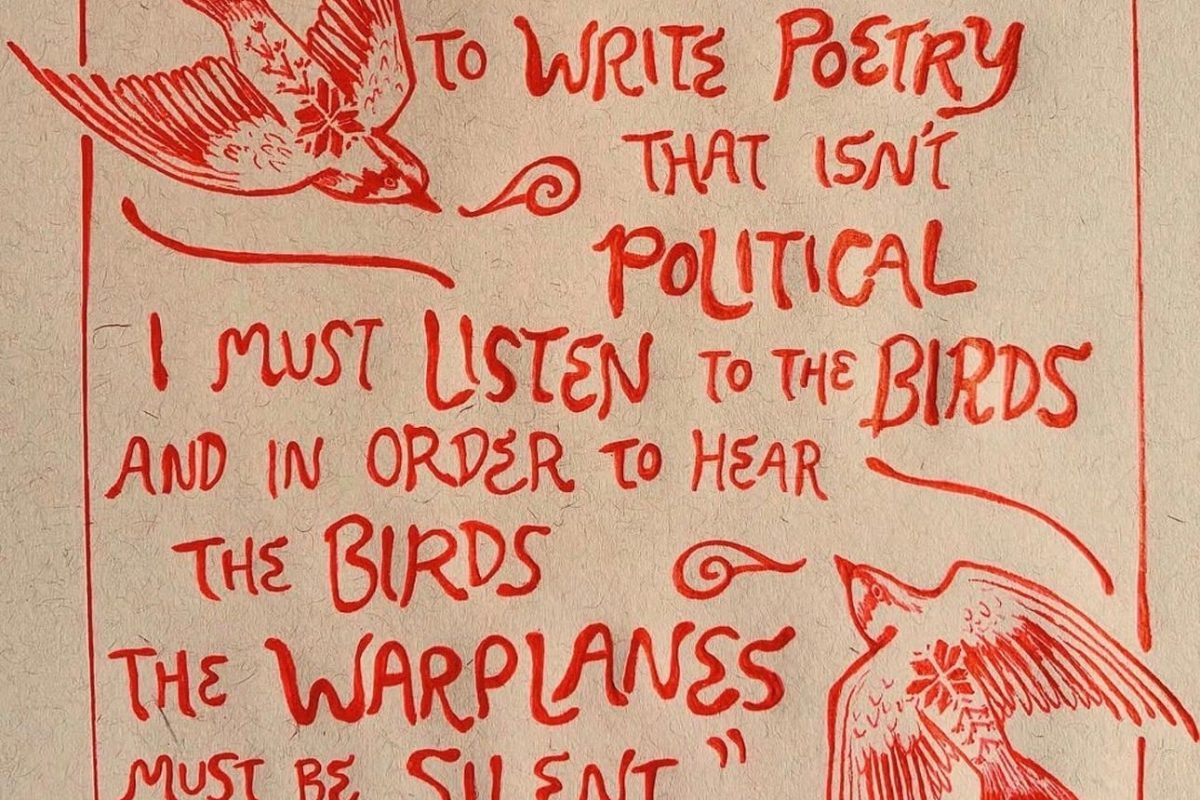 TO WRITE POETRY
THAT ISN'T
POLITICAL
I MUST LISTEN TO THE BIRDS
AND IN ORDER TO HEAR
THE BIRDS
THE WARPLANES
MUST BE SILENT"